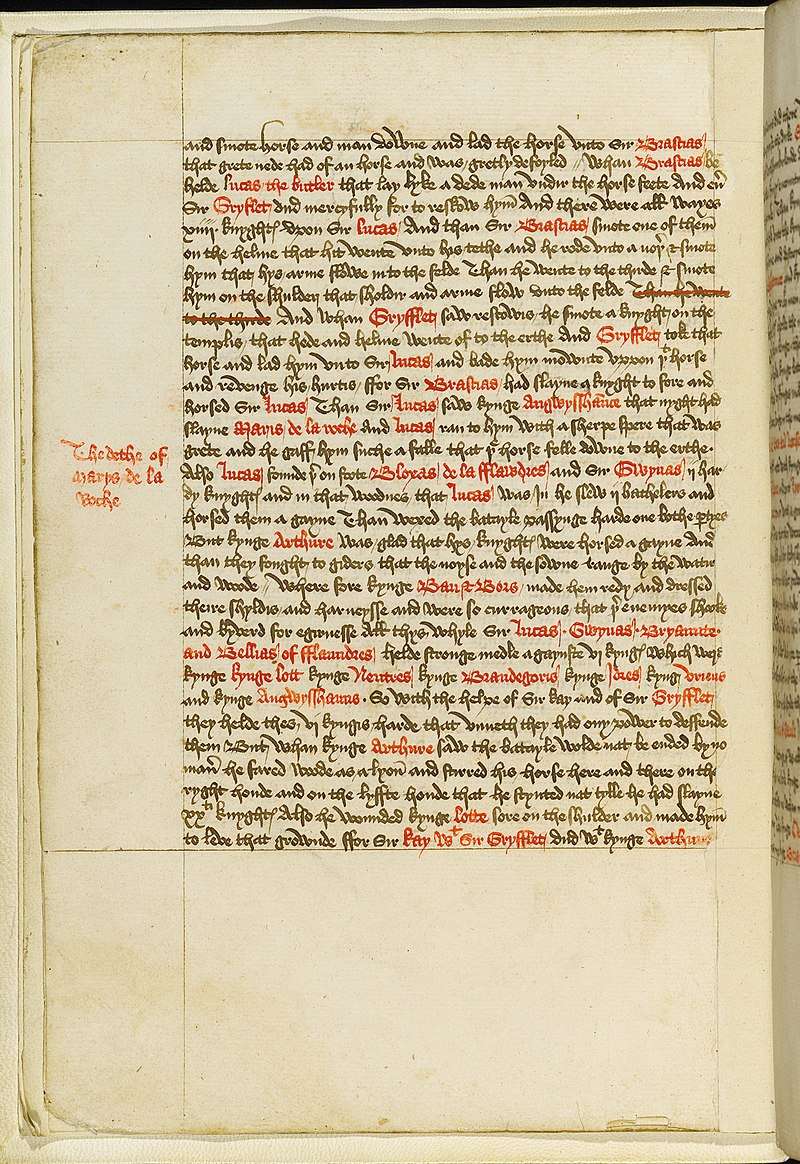 and smote horse and man downe and lad the horse vnto Sir Brastias
that grete nede had of an horse and was gretly defoyled // Whan Brastias be
helde lucas the butler that lay lyke a dede man vndir the horse feete And eũ
Sir Gryflet dud mercyfully for to reskow hym And there were all wayes
xiiij knyghtꝭ vpon Sir lucas And than Sir Brastias smote one of them
on the helme that hit wente vnto his tethe and he rode vnto a noyꝭ & smote
hym that hys arme flowe in to the felde Than he wente to the thirde & smote
hym on the shulder that sholdir and arme flow vnto the felde Than he wente
to the thirde And whan Grifflet saw reskowis he smote a knyght on the
templis that hede and helme wente of to the erthe And Gryfflet tok that
horse and lad hym vnto Sir lucas and bade hym mownte vppon þͭ horse
and revenge his hurtis ffor Sir Brastias had slayne a knyght to fore and
horsed Sir lucas Than Sir lucas saw kynge Angwysshaũce that nyght had
slayne Maris de la roche And lucas ran to hym with a sherpe spere that was
grete and he gaff hym suche a falle that þͤ horse felle downe to the erthe ·
Also lucas founde þͤ on foote Bloyas de la fflawndres and Sir Gwynas ij har
dy knyghtꝭ and in that woodnes that lucas was in he slew ij bathelers and
horsed them a gayne Than wexed the batayle passynge harde one bothe ꝑtyes
But kynge Arthure was glad that hys knyghtꝭ were horsed a gayne And
than they fought to giders that the noyse and the sowne range by the watir
and woode // Where fore kynge Ban & Bors made hem redy and dressed
theire shyldis and harneysse and were so currageous that þͤ enemyes shooke
and byverd for egirnesse All thys whyle Sir lucas · Gwynas · Bryaunte ·
and Bellias of fflaundres helde stronge medle a gaynste vj kyngꝭ Which were
kynge kynge lott kynge Neutres kynge Brandegoris kynge Idres kynge vriens
and kynge Angwysshauns · So with the helpe of Sir kay and of Sir Gryfflet
they helde thes vj kyngis harde that vnneth they had ony power to deffende
them But whan kynge Arthure saw the batayle wolde nat be ended by no
maner he fared woode as a lyon and stirred his horse here and there on the
ryght honde and on the lyffte honde that he stynted nat tylle he had slayne
xxͭͥ knyghtꝭ Also he wounded kynge lotte sore on the shulder and made hym
to leve that grownde ffor Sir kay wͭ Sir Gryfflet dud wͭ kynge Arthure
The dethe of
Marys de la
roche